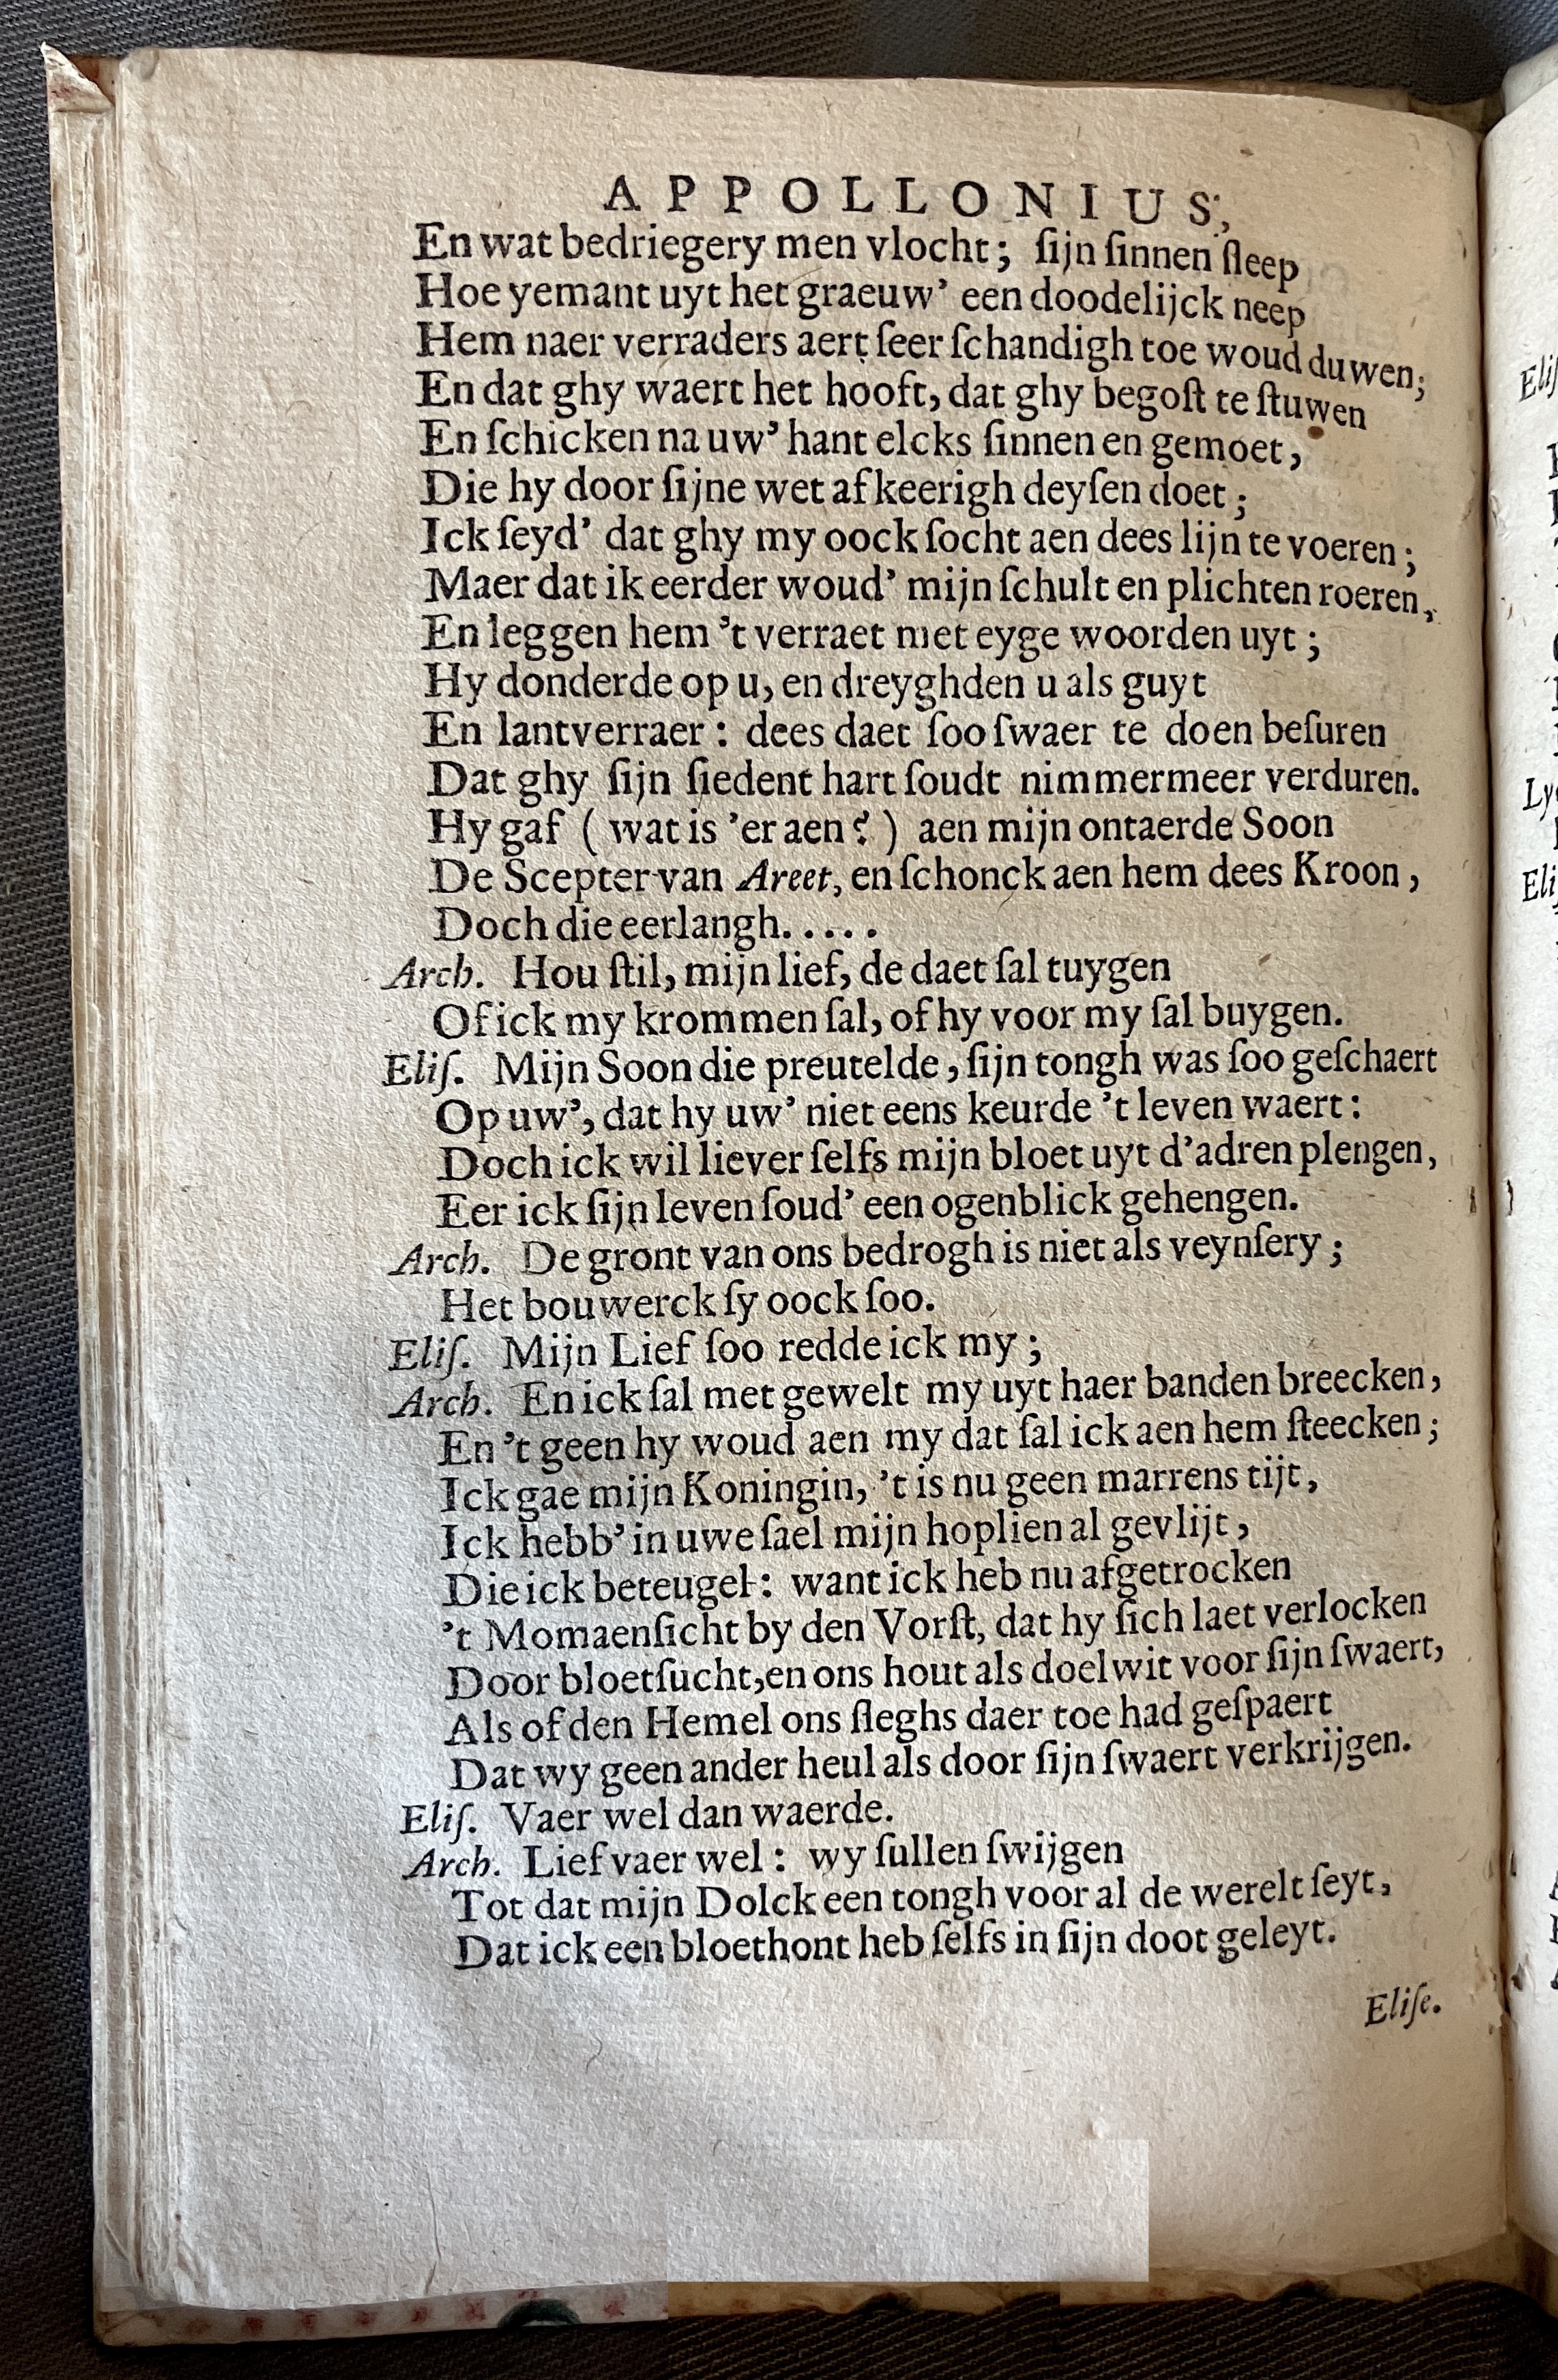 APPOLLONIUS,
En wat bedriegery men vlocht; ſijn ſinnen ſleep
Hoe yemant uyt het graeuw’ een doodelijck neep
Hem naer verraders aert ſeer ſchandigh toe woud duwen;
En dat ghy waert het hooft, dat ghy begoſt te ſtuwen
En ſchicken na uw’ hant elcks ſinnen en gemoet,
Die hy door ſijne wet afkeerigh deyſen doet;
Ick ſeyd’ dat ghy my oock ſocht aen dees lijn te voeren;
Maer dat ik eerder woud’ mijn ſchult en plichten roeren,
En leggen hem ’t verraet met eyge woorden uyt;
Hy donderde op u, en dreyghden u als guyt
En lantverraer: dees daet ſoo ſwaer te doen beſuren
Dat ghy ſijn ſiedent hart ſoudt nimmermeer verduren.
Hy gaf (wat is ’er aen?) aen mijn ontaerde Soon
De Scepter van Areet, en ſchonck aen hem dees Kroon,
Doch die eerlangh.....
Arch. Hou ſtil, mijn lief, de daet ſal tuygen
Of ick my krommen ſal, of hy voor my ſal buygen.
Eliſ. Mijn Soon die preutelde, ſijn tongh was ſoo geſchaert
Op uw’, dat hy uw’ niet eens keurde ’t leven waert:
Doch ick wil liever ſelfs mijn bloet uyt d’adren plengen,
Eer ick ſijn leven ſoud’ een ogenblick gehengen.
Arch. De gront van ons bedrogh is niet als veynſery;
Het bouwerck ſy oock ſoo.
Eliſ. Mijn Lief ſoo redde ick my;
Arch. En ick ſal met gewelt my uyt haer banden breecken,
En ’t geen hy woud aen my dat ſal ick aen hem ſteecken;
Ick gae mijn Koningin, ’t is nu geen marrens tijt,
Ick hebb’ in uwe ſael mijn hoplien al gevlijt,
Die ick beteugel: want ick heb nu afgetrocken
’t Momaenſicht by den Vorſt, dat hy ſich laet verlocken
Door bloetſucht, en ons hout als doelwit voor ſijn ſwaert,
Als of den Hemel ons ſleghs daer toe had geſpaert
Dat wy geen ander heul als door ſijn ſwaert verkrijgen.
Eliſ. Vaer wel dan waerde.
Arch. Lief vaer wel: wy ſullen ſwijgen
Tot dat mijn Dolck een tongh voor al de werelt ſeyt,
Dat ick een bloethont heb ſelfs in ſijn doot geleyt.
Eliſe.
Eliſ
Ly
Eli